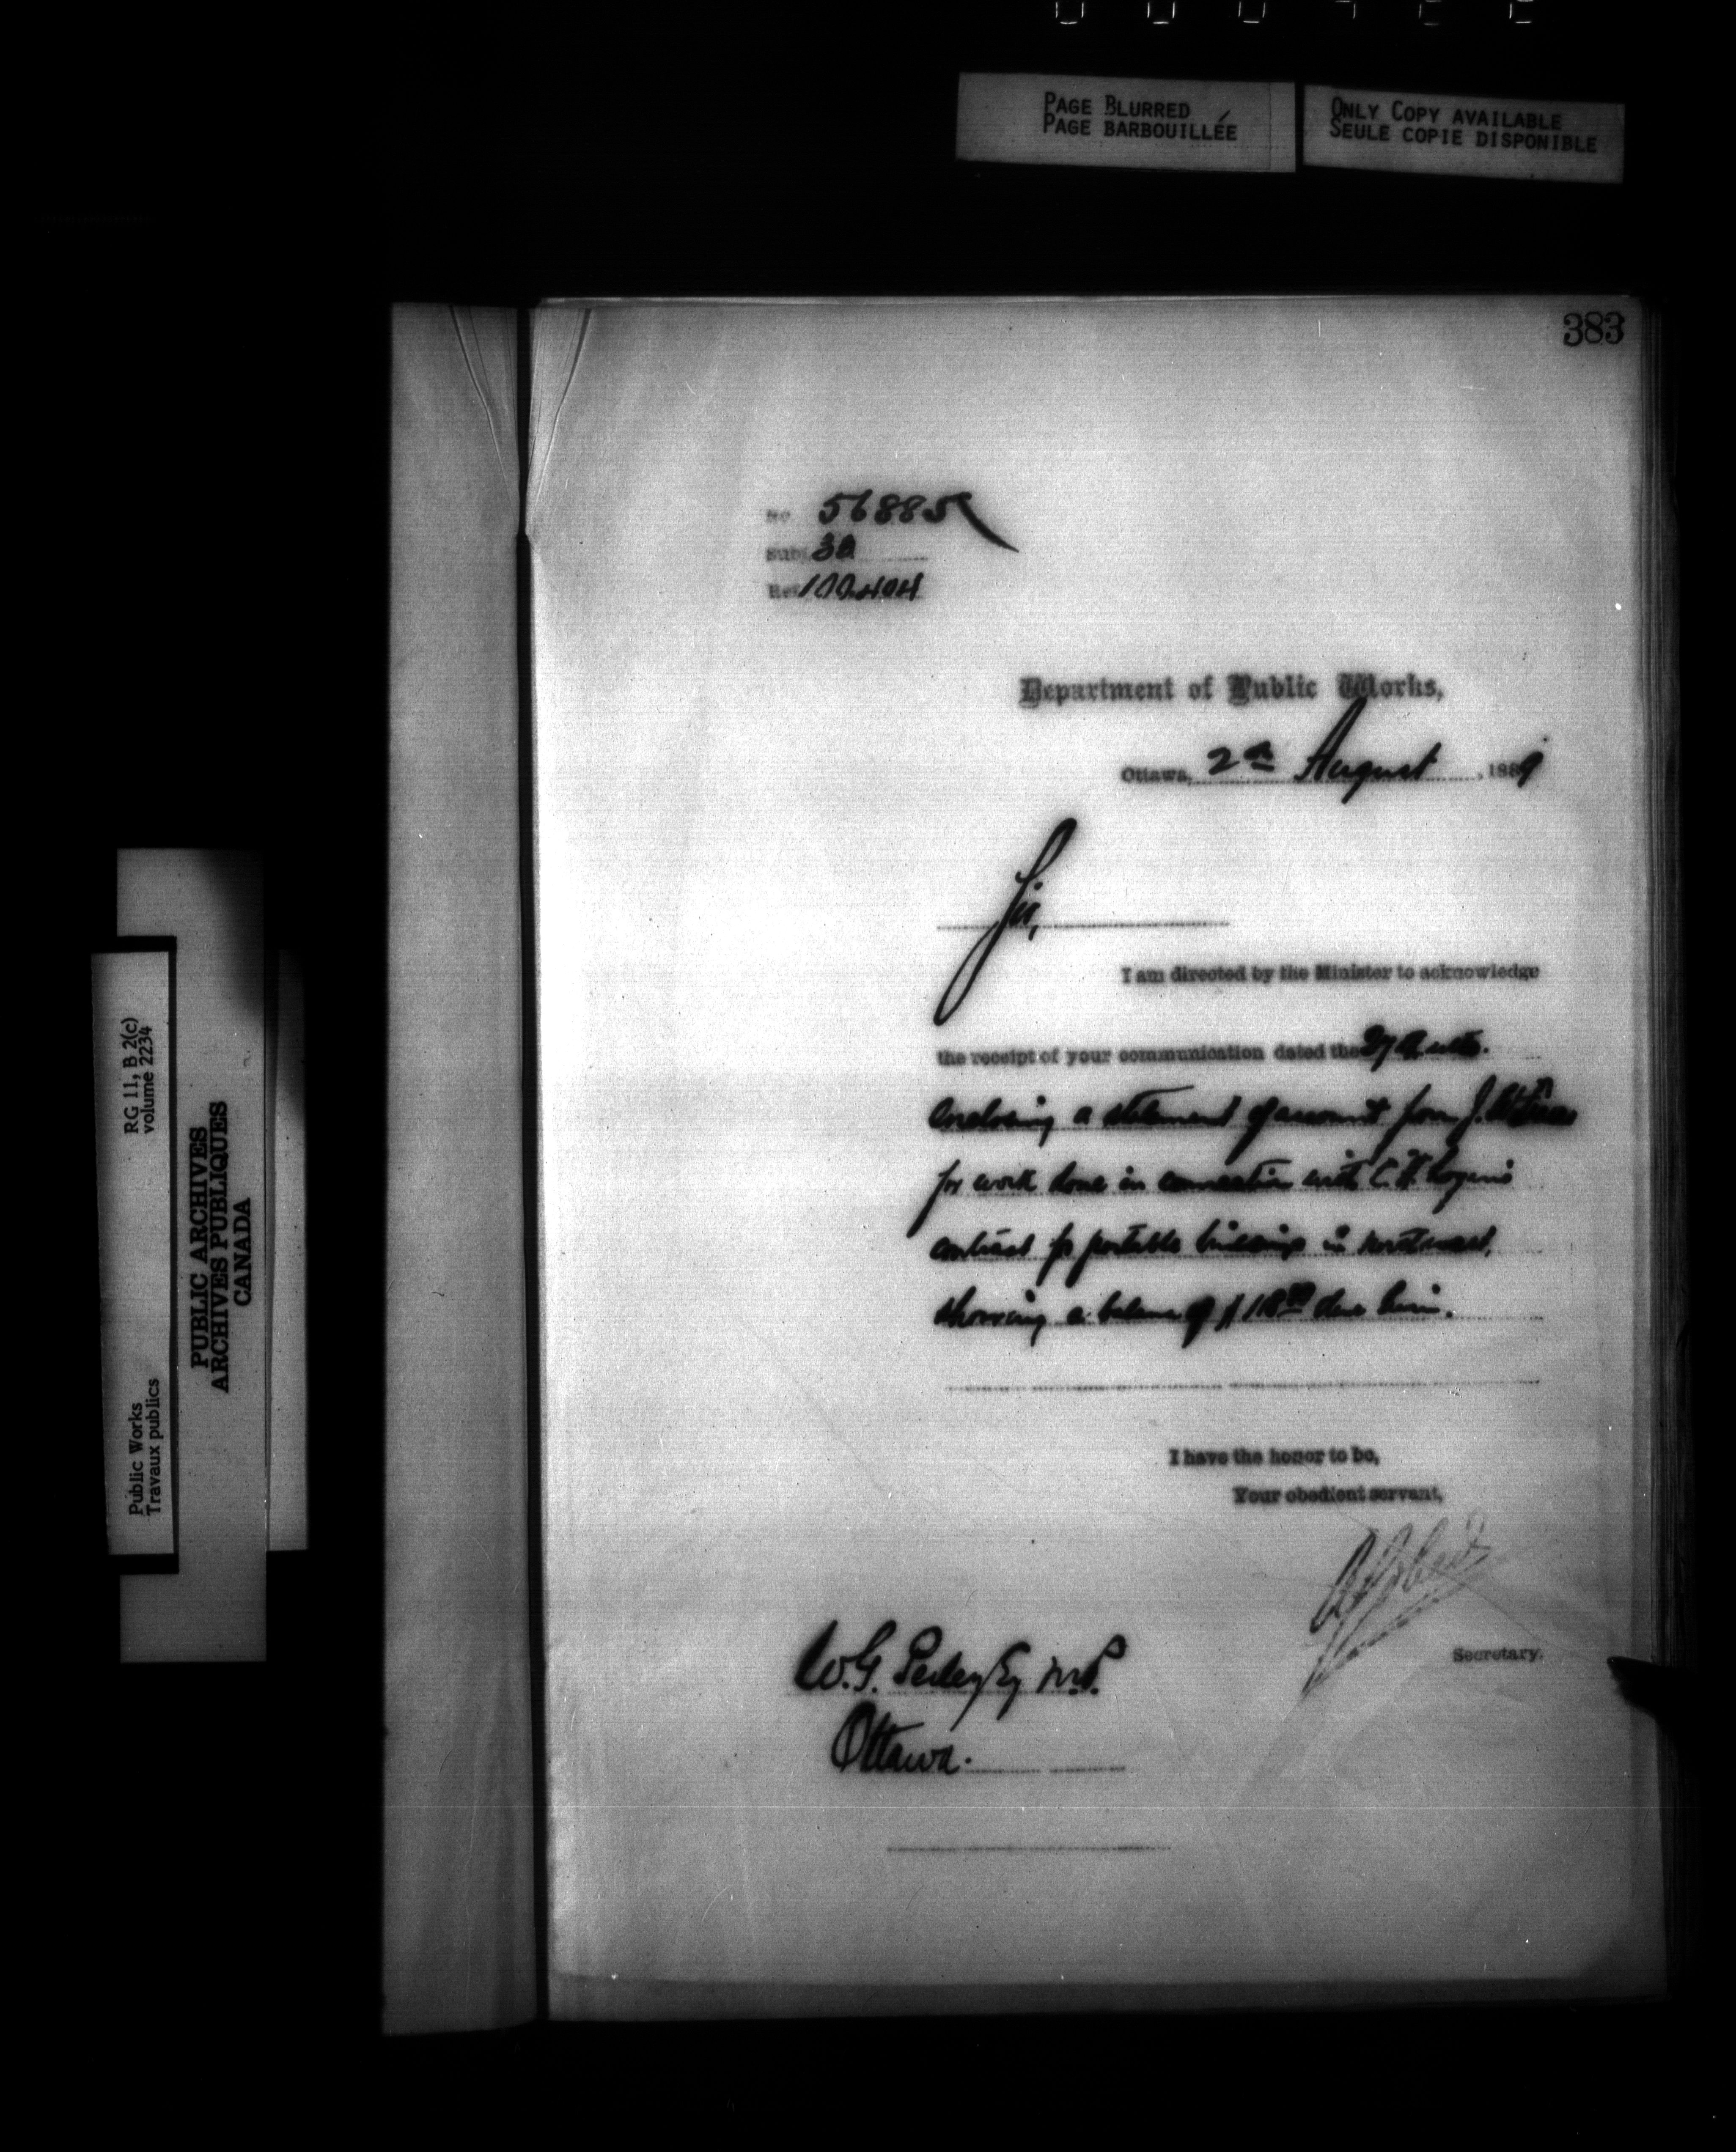 PAGE BLURRED
PAGE BARBOUILLÉE
ONLY COPY AVAILABLE
SEULE COPIE DISPONIBLE
383
No 56885
Subj. 30
Ref. 100404
Department of Public Works,
Ottawa, 2nd August, 1889
Sir,
I am directed by the Minister to acknowledge
the receipt of your communication dated the ulto.
enclosing a statement of account from J.
for work done in connection with C. H.
contract for portable buildings in Northwest,
showing a balance of due him.
I have the honor to be,
Your obedient servant,
Secretary.
W.G. Perley Esq M.P.
Ottawa.
RG 11, B 2(c)
volume 2234
Public Works
Travaux publics
PUBLIC ARCHIVES
ARCHIVES PUBLIQUES
CANADA